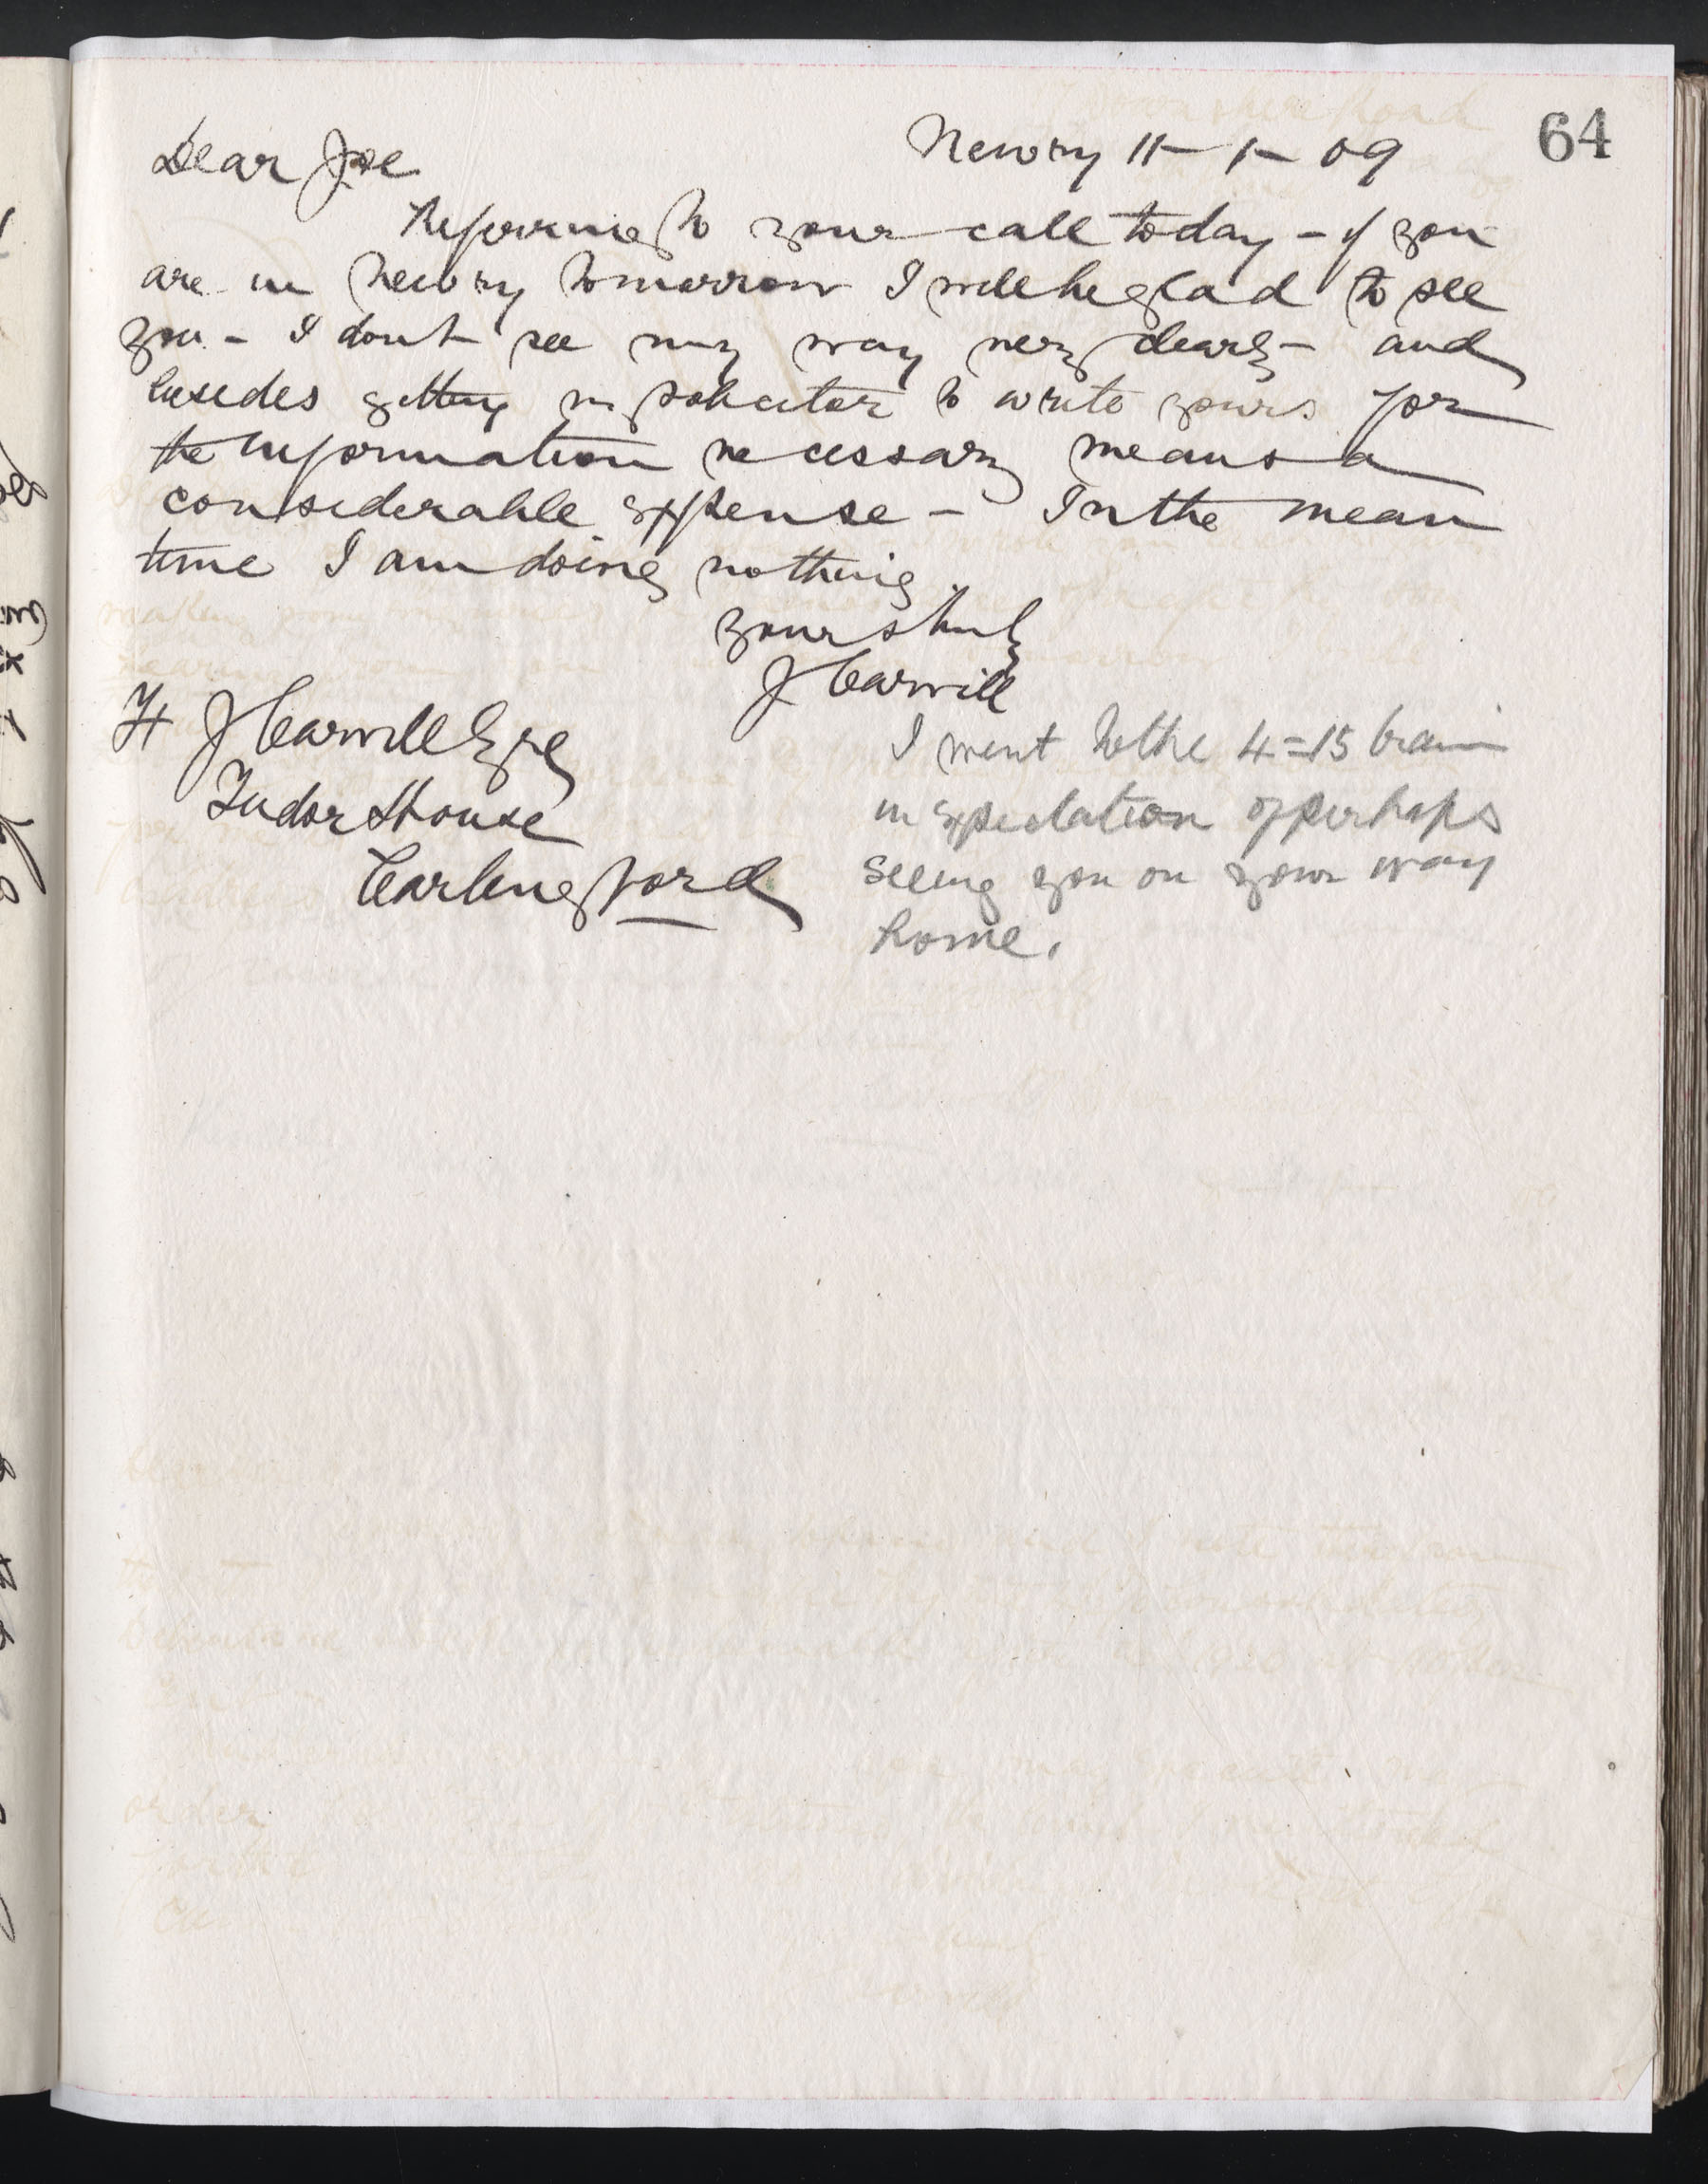 64
Newry 11-1-09
Dear Joe
Referring to your call today - if you
are in Newry tomorrow I will be glad to see
you - I dont see my way very clearly - and
besides getting my solicitor to write yours for
the information necessary means a
considerable expense - In the mean
time I am doing nothing.
Yours truly
J Carvill
J Carvill Esqe
Tudor House
Carlingford
I went to the 4=15 train
in expectation of perhaps
seeing you on your way
home.